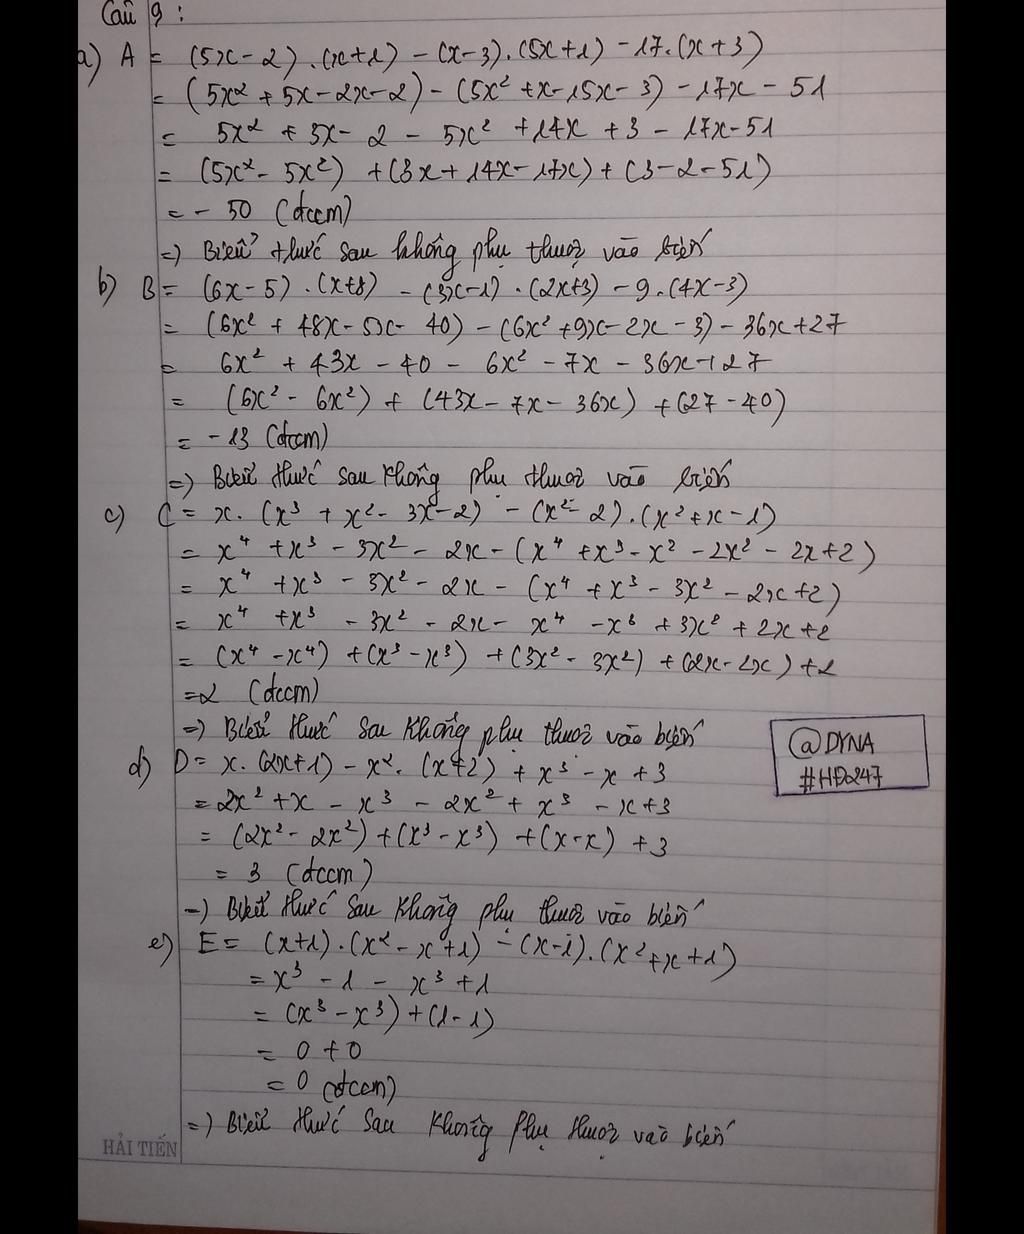 Câu 9 :
a) A = (5x - 2) . (x + 1) - (x - 3) . (5x + 1) - 17. (x + 3)
= (5x² + 5x - 2x - 2) - (5x² + x - 15x - 3) - 17x - 51
= 5x² + 3x - 2 - 5x² + 14x + 3 - 17x - 51
= (5x² - 5x²) + (3x + 14x - 17x) + (3 - 2 - 51)
= - 50 (đccm)
=) Biểu thức sau không phụ thuộc vào biến
b) B = (6x - 5) . (x + 8) - (3x - 1) . (2x + 3) - 9 . (4x - 3)
= (6x² + 48x - 5x - 40) - (6x² + 9x - 2x - 3) - 36x + 27
= 6x² + 43x - 40 - 6x² - 7x - 36x + 27
= (6x² - 6x²) + (43x - 7x - 36x) + (27 - 40)
= - 13 (đccm)
=) Biểu thức sau không phụ thuộc vào biến
c) C = x. (x³ + x² - 3x - 2) - (x² - 2) . (x² + x - 1)
= x⁴ + x³ - 3x² - 2x - (x⁴ + x³ - x² - 2x² - 2x + 2)
= x⁴ + x³ - 3x² - 2x - (x⁴ + x³ - 3x² - 2x + 2)
= x⁴ + x³ - 3x² - 2x - x⁴ - x³ + 3x² + 2x + 2
= (x⁴ - x⁴) + (x³ - x³) + (3x² - 3x²) + (2x - 2x) + 2
= 2 (đccm)
=) Biểu thức sau không phụ thuộc vào biến
@DYNA
#HĐ247
d) D = x. (2x + 1) - x². (x + 2) + x³ - x + 3
= 2x² + x - x³ - 2x² + x³ - x + 3
= (2x² - 2x²) + (x³ - x³) + (x - x) + 3
= 3 (đccm)
=) Biểu thức sau không phụ thuộc vào biến
e) E = (x + 1) . (x² - x + 1) - (x - 1) . (x² + x + 1)
= x³ - 1 - x³ + 1
= (x³ - x³) + (1 - 1)
= 0 + 0
= 0 (đccm)
=) Biểu thức sau không phụ thuộc vào biến
HẢI TIẾN